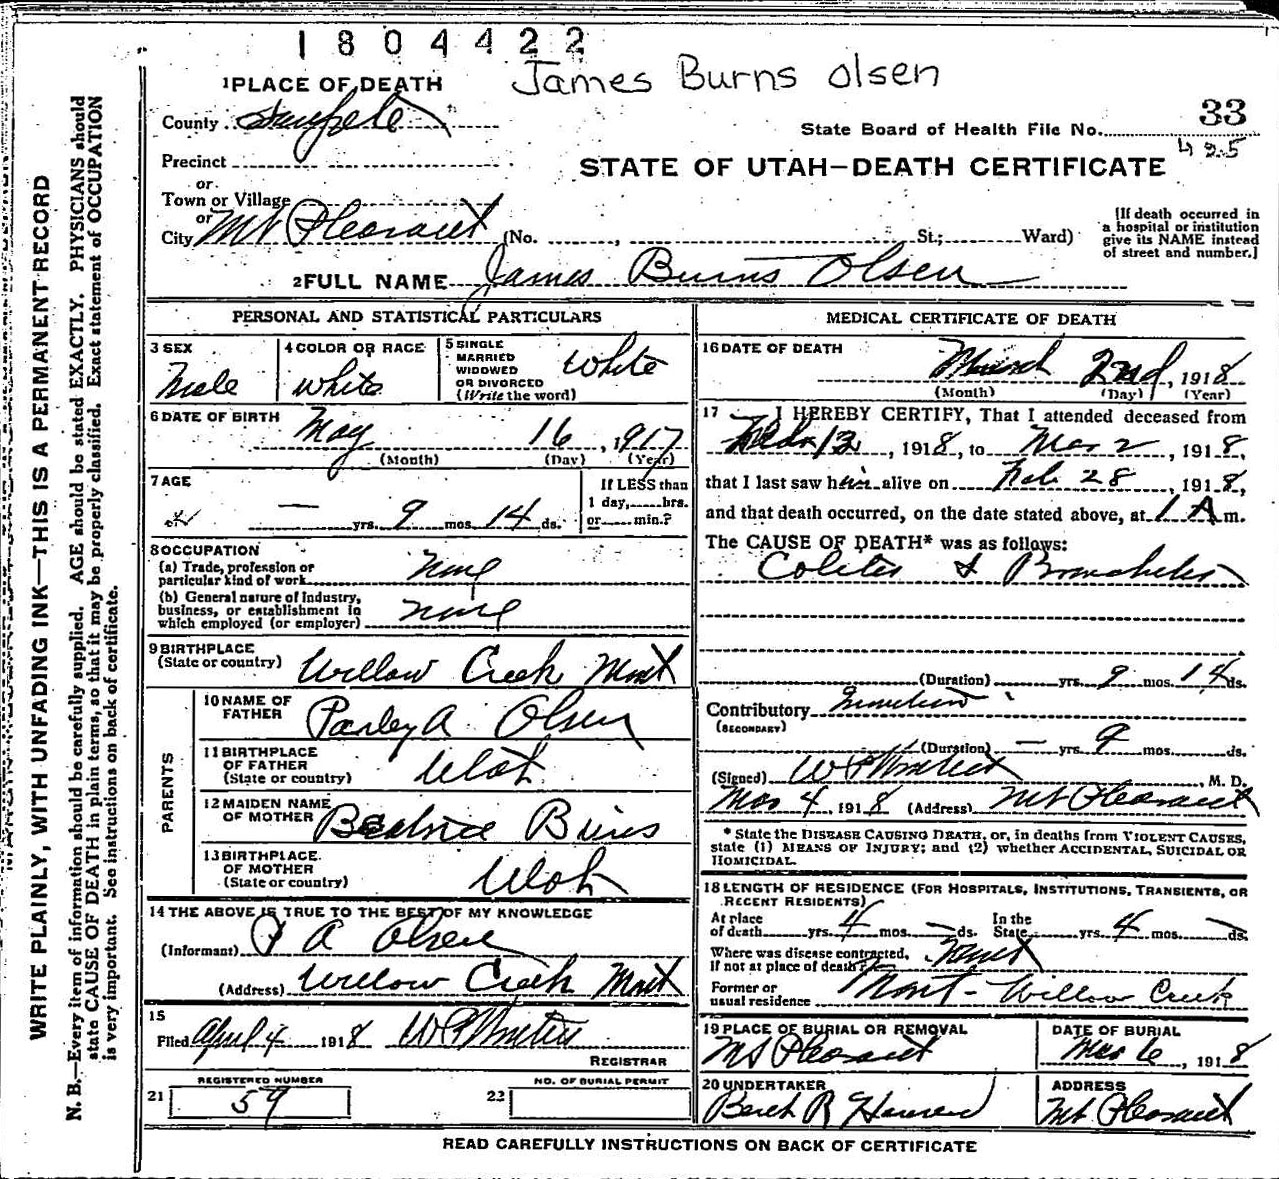 1804422
James Burns Olsen
1 PLACE OF DEATH
County Sanpete
33
State Board of Health File No.
425
Precinct
STATE OF UTAH—DEATH CERTIFICATE
or
Town or Village
or
City Mt Pleasant (No. , St.; Ward)
[If death occurred in a hospital or institution give its NAME instead of street and number.]
2 FULL NAME James Burns Olsen
WRITE PLAINLY, WITH UNFADING INK—THIS IS A PERMANENT RECORD
N. B.—Every item of information should be carefully supplied. AGE should be stated EXACTLY. PHYSICIANS should
state CAUSE OF DEATH in plain terms, so that it may be properly classified. Exact statement of OCCUPATION
is very important. See instructions on back of certificate.
PERSONAL AND STATISTICAL PARTICULARS
3 SEX
Male
4 COLOR OR RACE
white
5 SINGLE
MARRIED
WIDOWED
OR DIVORCED
(Write the word)
White
6 DATE OF BIRTH
May 16, 1917
(Month) (Day) (Year)
7 AGE
— yrs. 9 mos. 14 ds.
If LESS than
1 day, hrs.
or min.?
8 OCCUPATION
(a) Trade, profession or
particular kind of work None
(b) General nature of industry,
business, or establishment in
which employed (or employer) none
9 BIRTHPLACE
(State or country) Willow Creek Mont
PARENTS
10 NAME OF
FATHER Parley A Olsen
11 BIRTHPLACE
OF FATHER
(State or country) Utah
12 MAIDEN NAME
OF MOTHER Beatrice Burns
13 BIRTHPLACE
OF MOTHER
(State or country) Utah
14 THE ABOVE IS TRUE TO THE BEST OF MY KNOWLEDGE
(Informant) P A Olsen
(Address) Willow Creek Mont
15
Filed April 4 1918
REGISTRAR
REGISTERED NUMBER
21 59
NO. OF BURIAL PERMIT
22
MEDICAL CERTIFICATE OF DEATH
16 DATE OF DEATH
March 2nd, 1918
(Month) (Day) (Year)
17 I HEREBY CERTIFY, That I attended deceased from
13, 1918, to Mar 2, 1918,
that I last saw him alive on Feb 28, 1918,
and that death occurred, on the date stated above, at 1 A m.
The CAUSE OF DEATH* was as follows:
Colitis & Bronchitis
(Duration) yrs. 9 mos. 14 ds.
Contributory
(SECONDARY)
(Duration) — yrs. 9 mos. ds.
(Signed) , M. D.
Mar 4, 1918 (Address) Mt Pleasant
* State the DISEASE CAUSING DEATH, or, in deaths from VIOLENT CAUSES,
state (1) MEANS OF INJURY; and (2) whether ACCIDENTAL, SUICIDAL OR
HOMICIDAL.
18 LENGTH OF RESIDENCE (FOR HOSPITALS, INSTITUTIONS, TRANSIENTS, OR
RECENT RESIDENTS)
At place
of death yrs. 4 mos. ds.
In the
State yrs. 4 mos. ds.
Where was disease contracted,
If not at place of death?
Former or
usual residence Mont - Willow Creek
19 PLACE OF BURIAL OR REMOVAL
Mt Pleasant
DATE OF BURIAL
Mar 6, 1918
20 UNDERTAKER
ADDRESS
Mt Pleasant
READ CAREFULLY INSTRUCTIONS ON BACK OF CERTIFICATE